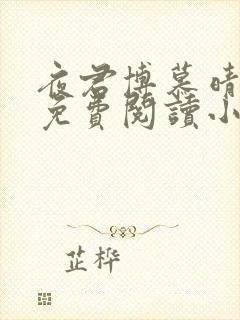 夜君博慕晴
免費閱讀小
芷桦